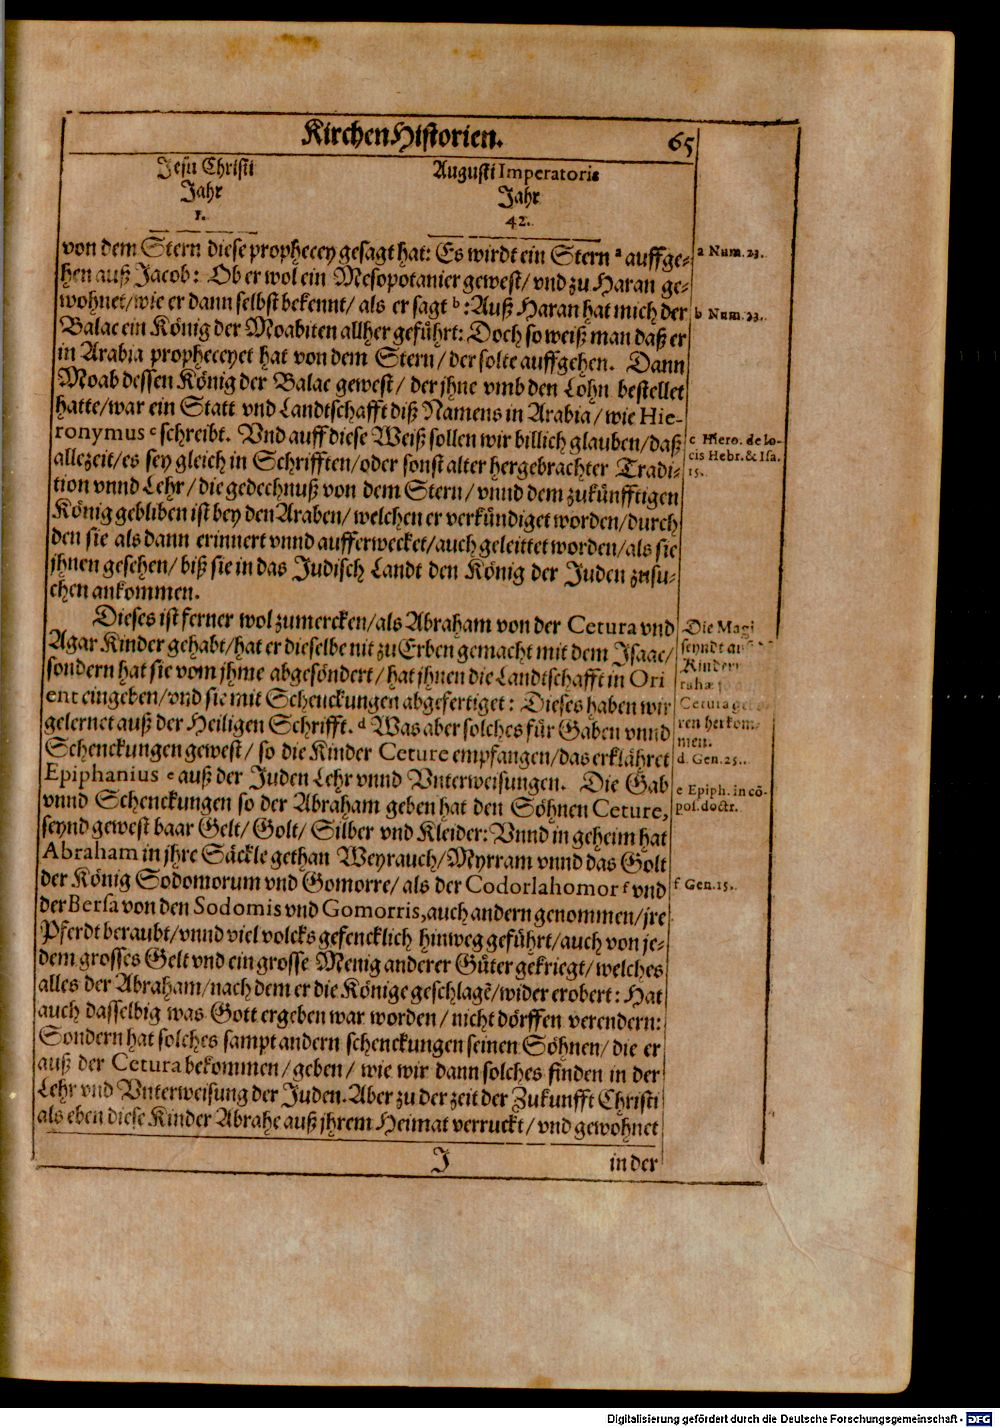 KirchenHistorien. 65
Jesu Christi
Jahr
1.
Augusti Imperatoris
Jahr
42.
von dem Stern diese prophecey gesagt hat: Es wirdt ein Stern a auffge-
hen auß Jacob: Ob er wol ein Mesopotanier gewest/ vnd zu Haran ge-
wohnet/ wie er dann selbst bekennt/ als er sagt b: Auß Haran hat mich der
Balac ein König der Moabiten allher geführt: Doch so weiß man daß er
in Arabia propheceyet hat von dem Stern/ der solte auffgehen. Dann
Moab dessen König der Balac gewest/ der jhne vmb den Lohn bestellet
hatte/ war ein Statt vnd Landtschafft diß Namens in Arabia/ wie Hie-
ronymus c schreibt. Vnd auff diese Weiß sollen wir billich glauben/ daß
allezeit/ es sey gleich in Schrifften/ oder sonst alter hergebrachter Tradi-
tion vnnd Lehr/ die gedechnuß von dem Stern/ vnnd dem zukünfftigen
König gebliben ist bey den Araben/ welchen er verkündiget worden/ durch
den sie als dann erinnert vnnd aufferwecket/ auch geleittet worden/ als sie
jhnen gesehen/ biß sie in das Judisch Landt den König der Juden zusu-
chen ankommen.
Dieses ist ferner wol zumercken/ als Abraham von der Cetura vnd
Agar Kinder gehabt/ hat er dieselbe nit zu Erben gemacht mit dem Isaac/
sondern hat sie vom jhme abgesöndert/ hat jhnen die Landtschafft in Ori
ent eingeben/ vnd sie mit Schenckungen abgefertiget: Dieses haben wir
gelernet auß der Heiligen Schrifft. d Was aber solches für Gaben vnnd
Schenckungen gewest/ so die Kinder Ceture empfangen/ das erklähret
Epiphanius e auß der Juden Lehr vnnd Vnterweisungen. Die Gab
vnnd Schenckungen so der Abraham geben hat den Söhnen Ceture,
seynd gewest baar Gelt/ Golt/ Silber vnd Kleider: Vnnd in geheim hat
Abraham in jhre Säckle gethan Weyrauch/ Myrram vnnd das Golt
der König Sodomorum vnd Gomorre/ als der Codorlahomor f vnd
der Bersa von den Sodomis vnd Gomorris, auch andern genommen/ jre
Pferdt beraubt/ vnnd viel volcks gefencklich hinweg geführt/ auch von je-
dem grosses Gelt vnd ein grosse Menig anderer Güter gekriegt/ welches
alles der Abraham/ nach dem er die Könige geschlagē/ wider erobert: Hat
auch dasselbig was Gott ergeben war worden/ nicht dörffen verendern:
Sondern hat solches sampt andern schenckungen seinen Söhnen/ die er
auß der Cetura bekommen/ geben/ wie wir dann solches finden in der
Lehr vnd Vnterweisung der Juden. Aber zu der zeit der Zukunfft Christi
als eben diese Kinder Abrahe auß jhrem Heimat verruckt/ vnd gewohnet
J in der
a Num. 23.
b Num. 23.
c Hiero. de lo-
cis Hebr. & Isa.
15.
Die Magi
seyndt
Kinder
Cetura
ren herkom-
men.
d. Gen. 25.
e Epiph. in cō-
pos. doctr.
f Gen. 15.
Digitalisierung gefördert durch die Deutsche Forschungsgemeinschaft - DFG